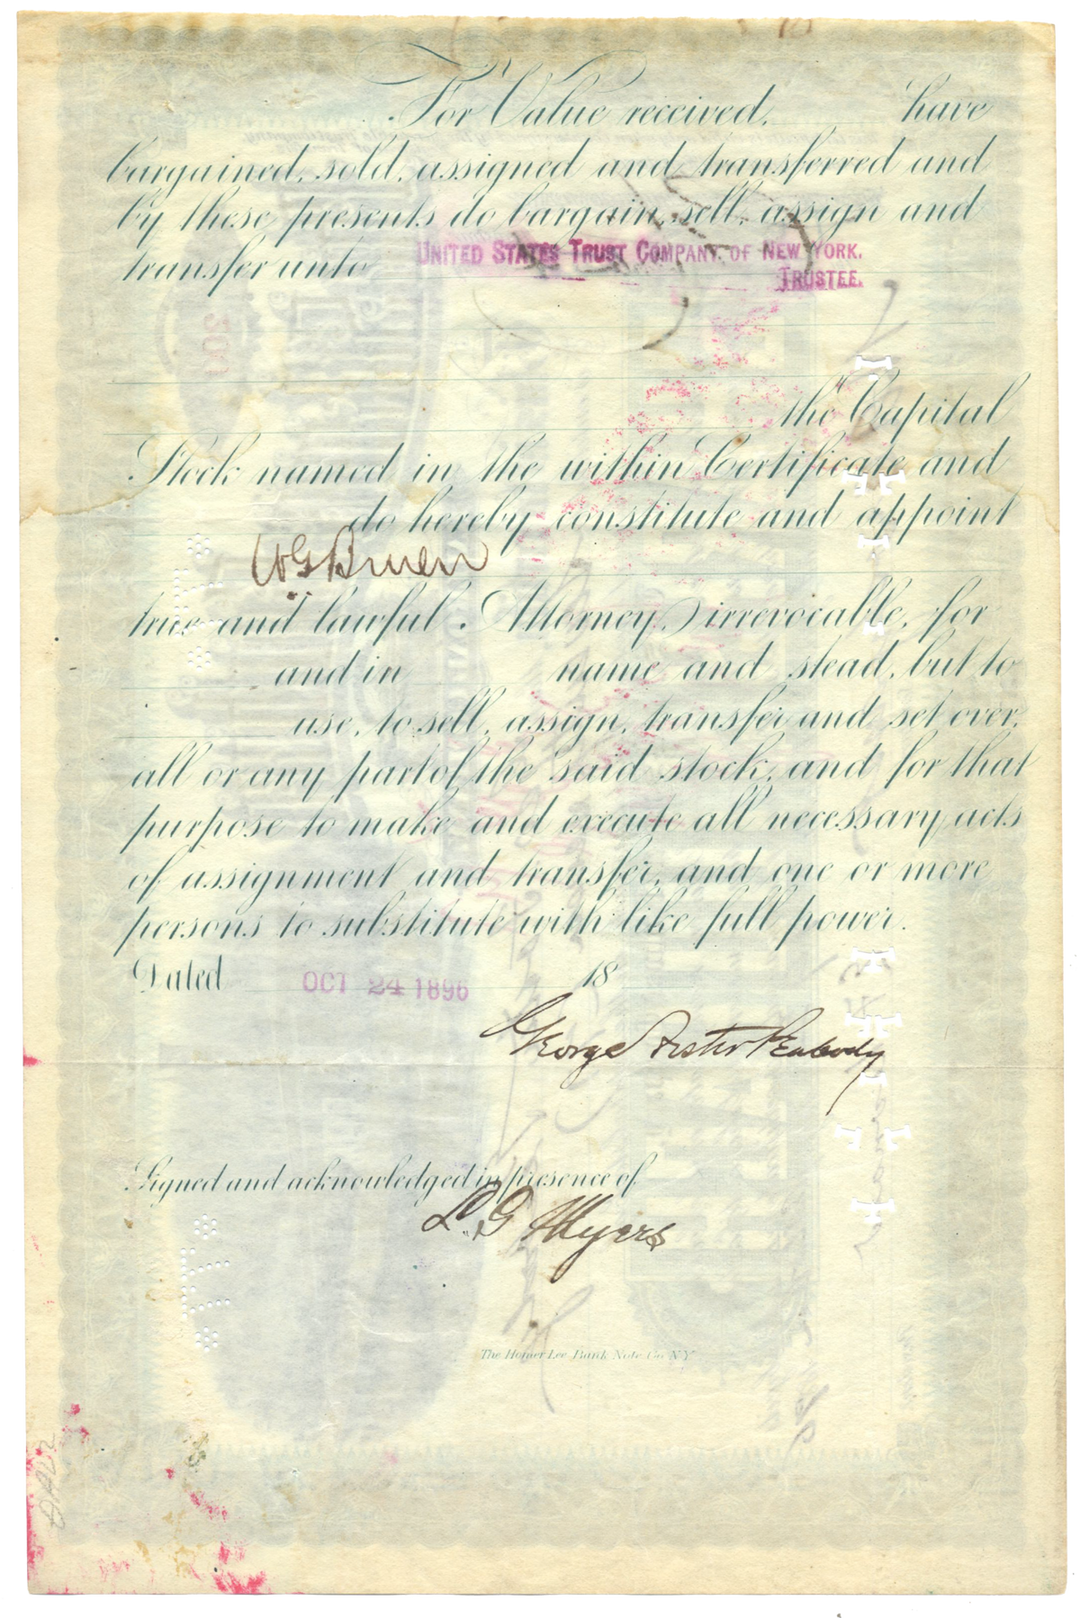 For Value received, have
bargained, sold, assigned and transferred and
by these presents do bargain, sell, assign and
transfer unto UNITED STATES TRUST COMPANY OF NEW YORK,
TRUSTEE.
the Capital
Stock named in the within Certificate and
do hereby constitute and appoint
W G Bruen
true and lawful Attorney, irrevocable, for
and in name and stead, but to
use, to sell, assign, transfer and set over,
all or any part of the said stock, and for that
purpose to make and execute all necessary acts
of assignment and transfer, and one or more
persons to substitute with like full power.
Dated OCT 24 1896 18
George Foster Peabody
Signed and acknowledged in presence of
L. G Myers
The Homer Lee Bank Note Co. N.Y.